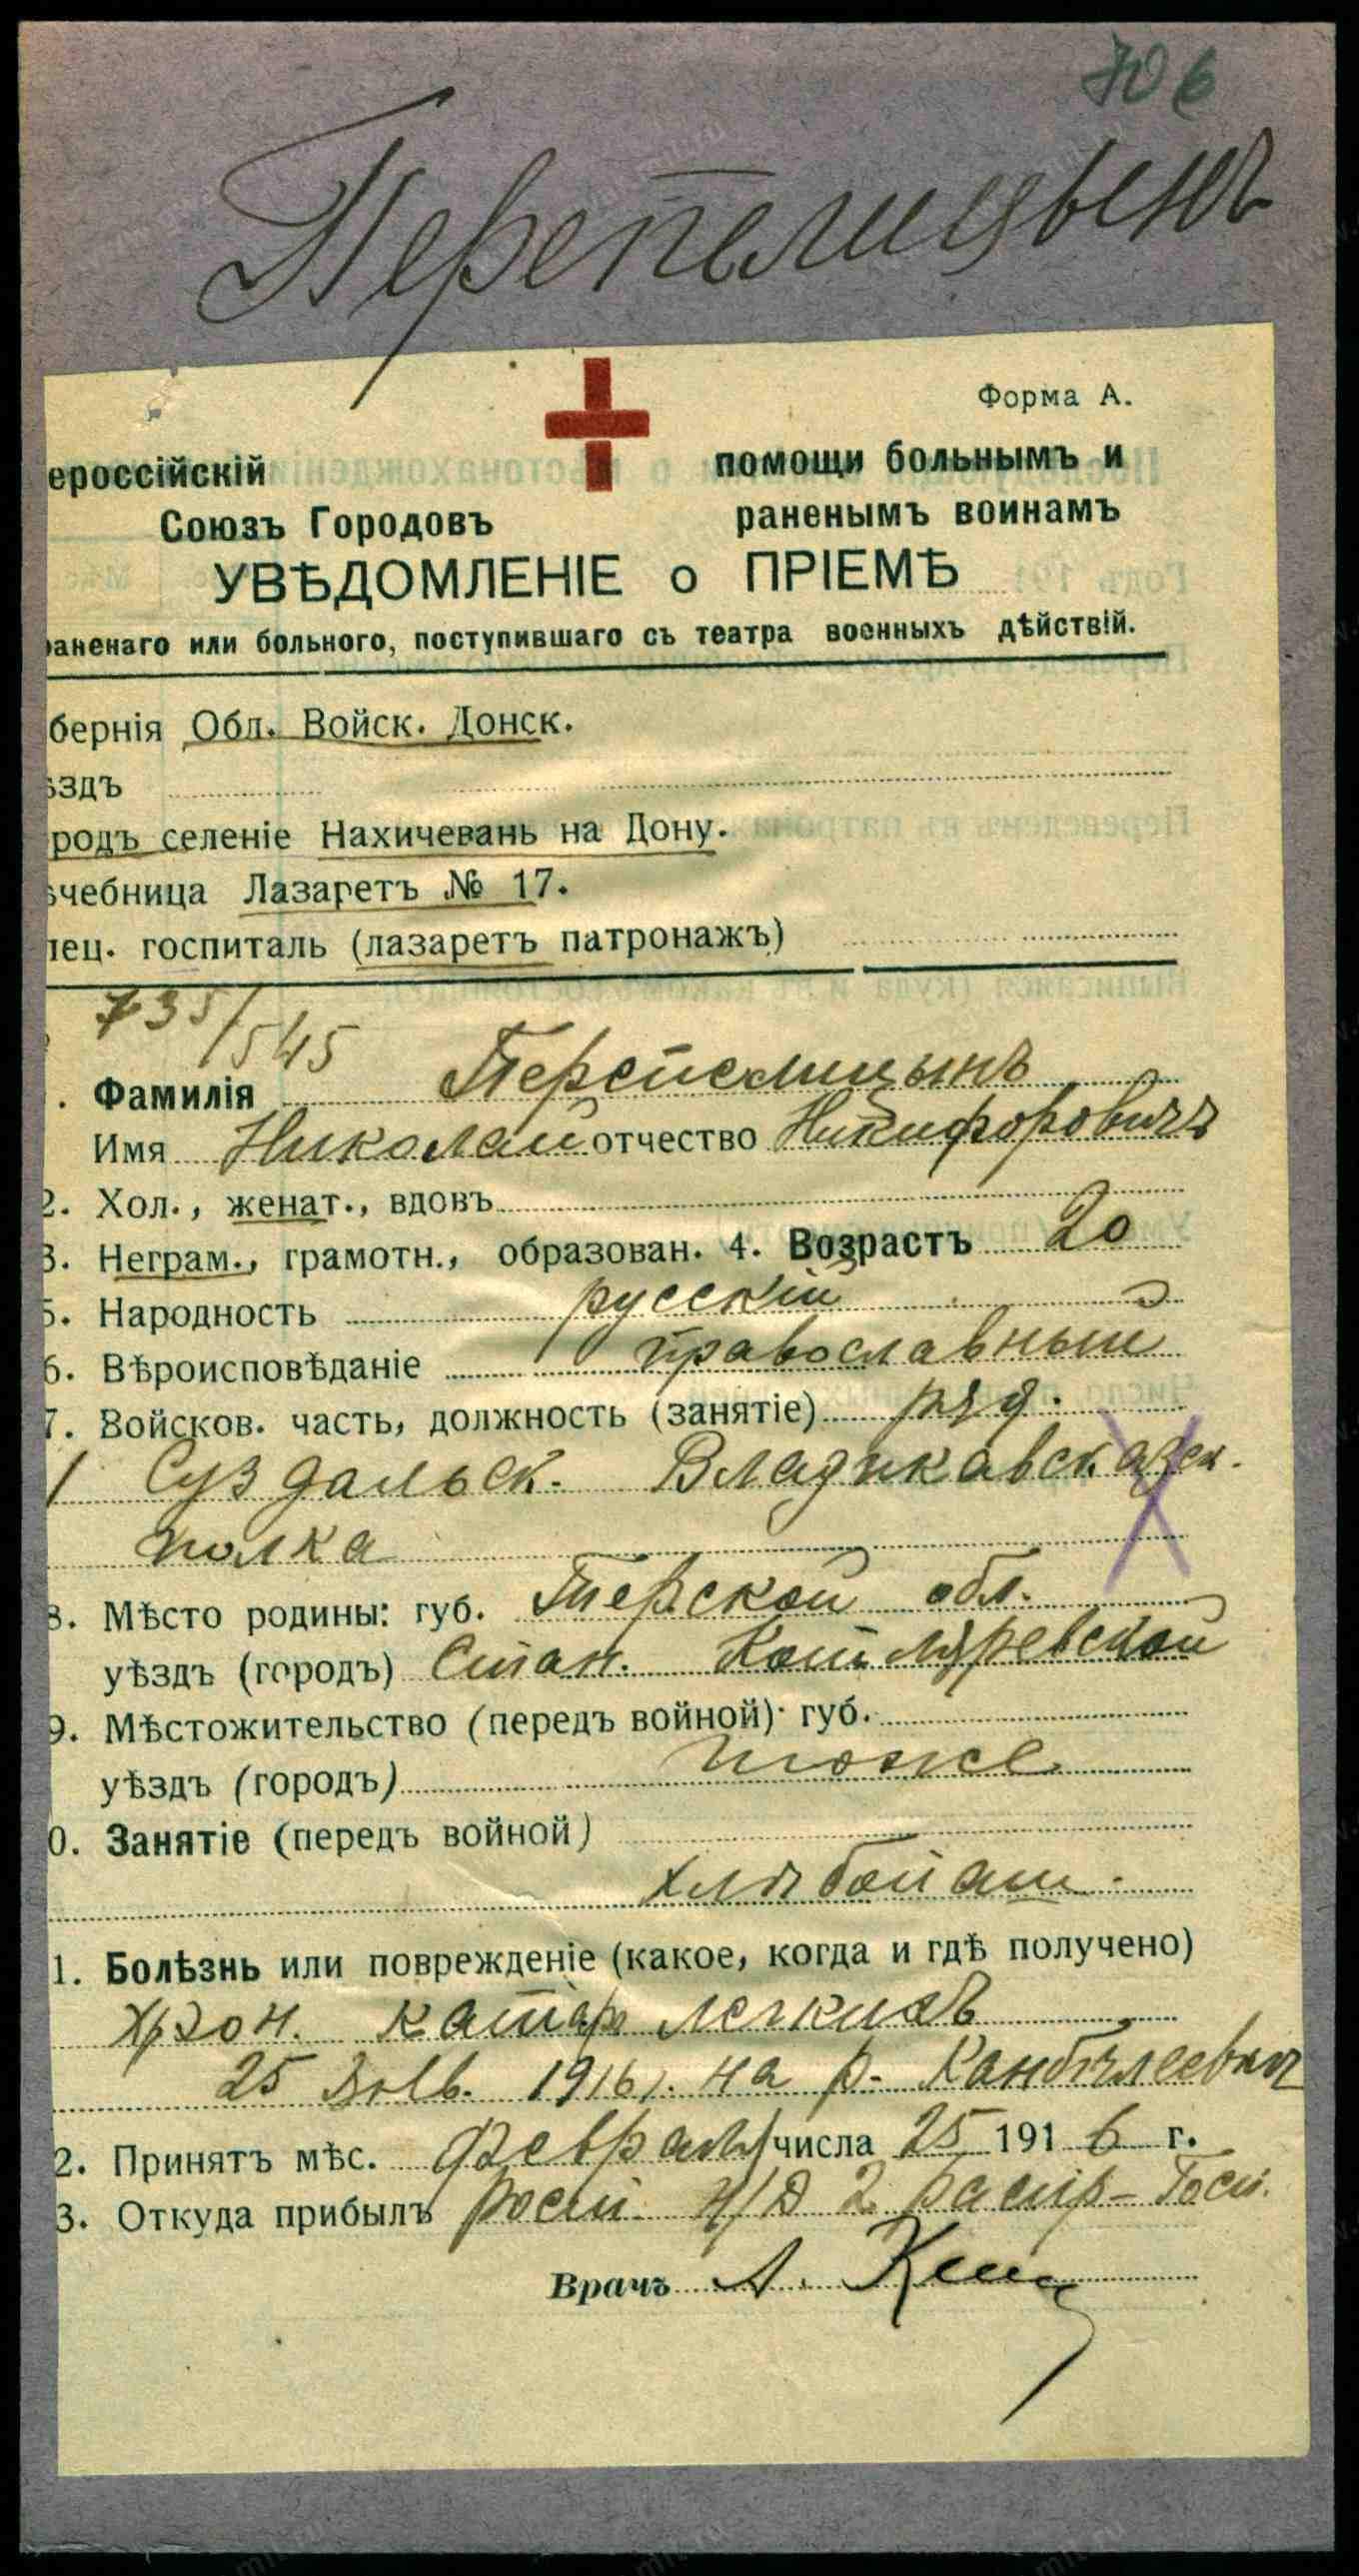 706
Перепелицынъ
Форма А.
ероссійскій помощи больнымъ и
Союзъ Городовъ раненымъ воинамъ
УВѢДОМЛЕНІЕ о ПРІЕМѢ
раненаго или больного, поступившаго съ театра военныхъ дѣйствій.
бернія Обл. Войск. Донск.
ѣздъ
родъ селеніе Нахичевань на Дону.
ѣчебница Лазаретъ № 17.
пец. госпиталь (лазаретъ патронажъ)
735/545
. Фамилія Перепелицынъ
Имя Николай отчество Никифоровичъ
2. Хол., женат., вдовъ
3. Неграм., грамотн., образован. 4. Возрастъ 20
5. Народность русскій
6. Вѣроисповѣданіе православный
7. Войсков. часть, должность (занятіе) ряд.
1 Суздальск. Владикавск
полка
8. Мѣсто родины: губ. Терской обл.
уѣздъ (городъ) Стан. Котляревской
9. Мѣстожительство (передъ войной) губ.
уѣздъ (городъ) тоже
0. Занятіе (передъ войной)
хлѣбопаш.
1. Болѣзнь или поврежденіе (какое, когда и гдѣ получено)
хрон. катар легкихъ
25 1916 г. на р.
2. Принятъ мѣс. феврал числа 25 1916 г.
3. Откуда прибылъ Рост. н/Д 2 распр- Госп.
Врачъ А.